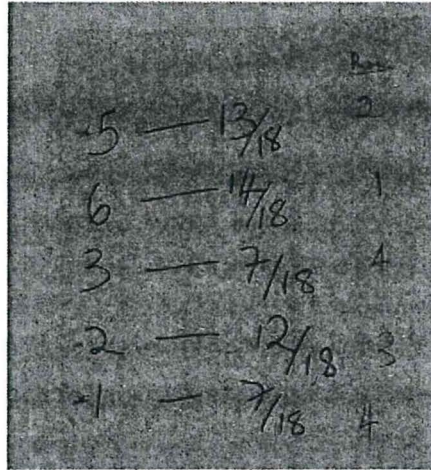 5 — 13/18 2
6 — 14/18 1
3 — 7/18 4
2 — 12/18 3
1 — 7/18 4